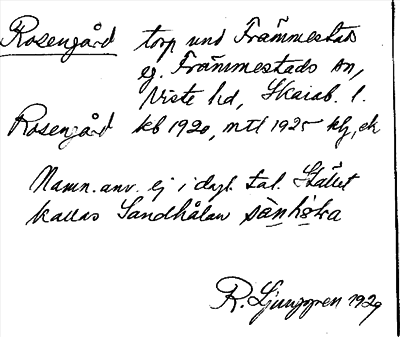 Rosengård torp und Främmestads
eg. Främmestads sn,
Viste hd, Skarab. l.
Rosengård kb 1920, mtl 1925 klf, ek
Namn. anv. ej i dagl. tal. Stället
kallas Sandhålan
R. Ljunggren 1929